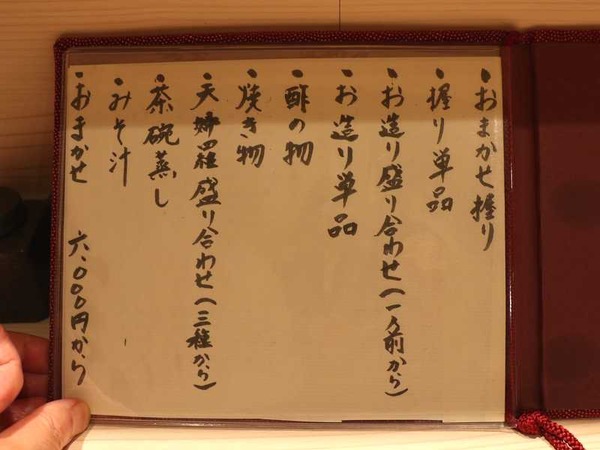 ・おまかせ握り
・握り単品
・お造り盛り合わせ(一人前から)
・お造り単品
・酢の物
・焼き物
・天婦羅盛り合わせ(三種から)
・茶碗蒸し
・みそ汁
・おまかせ 六.000円から